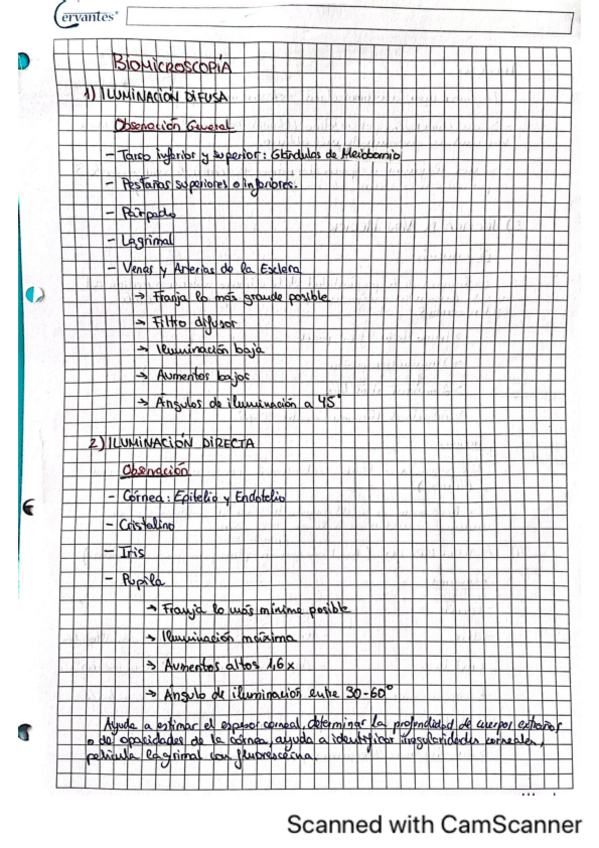 Cervantes
BIOMICROSCOPÍA
1) ILUMINACIÓN DIFUSA
Observación General
- Tarso inferior y superior: Glándulas de Meibomio
- Pestañas superiores o inferiores.
- Párpado
- Lagrimal
- Venas y Arterias de la Esclera
→ Franja lo más grande posible
→ Filtro difusor
→ Iluminación baja
→ Aumentos bajos
→ Ángulos de iluminación a 45°
2) ILUMINACIÓN DIRECTA
Observación
- Córnea: Epitelio y Endotelio
- Cristalino
- Iris
- Pupila
→ Franja lo más mínima posible
→ Iluminación máxima
→ Aumentos altos 1,6x
→ Ángulo de iluminación entre 30-60°
Ayuda a estimar el espesor corneal, determinar la profundidad de cuerpos extraños
o de opacidades de la córnea, ayuda a identificar irregularidades corneales,
película lagrimal con fluoresceína.
Scanned with CamScanner